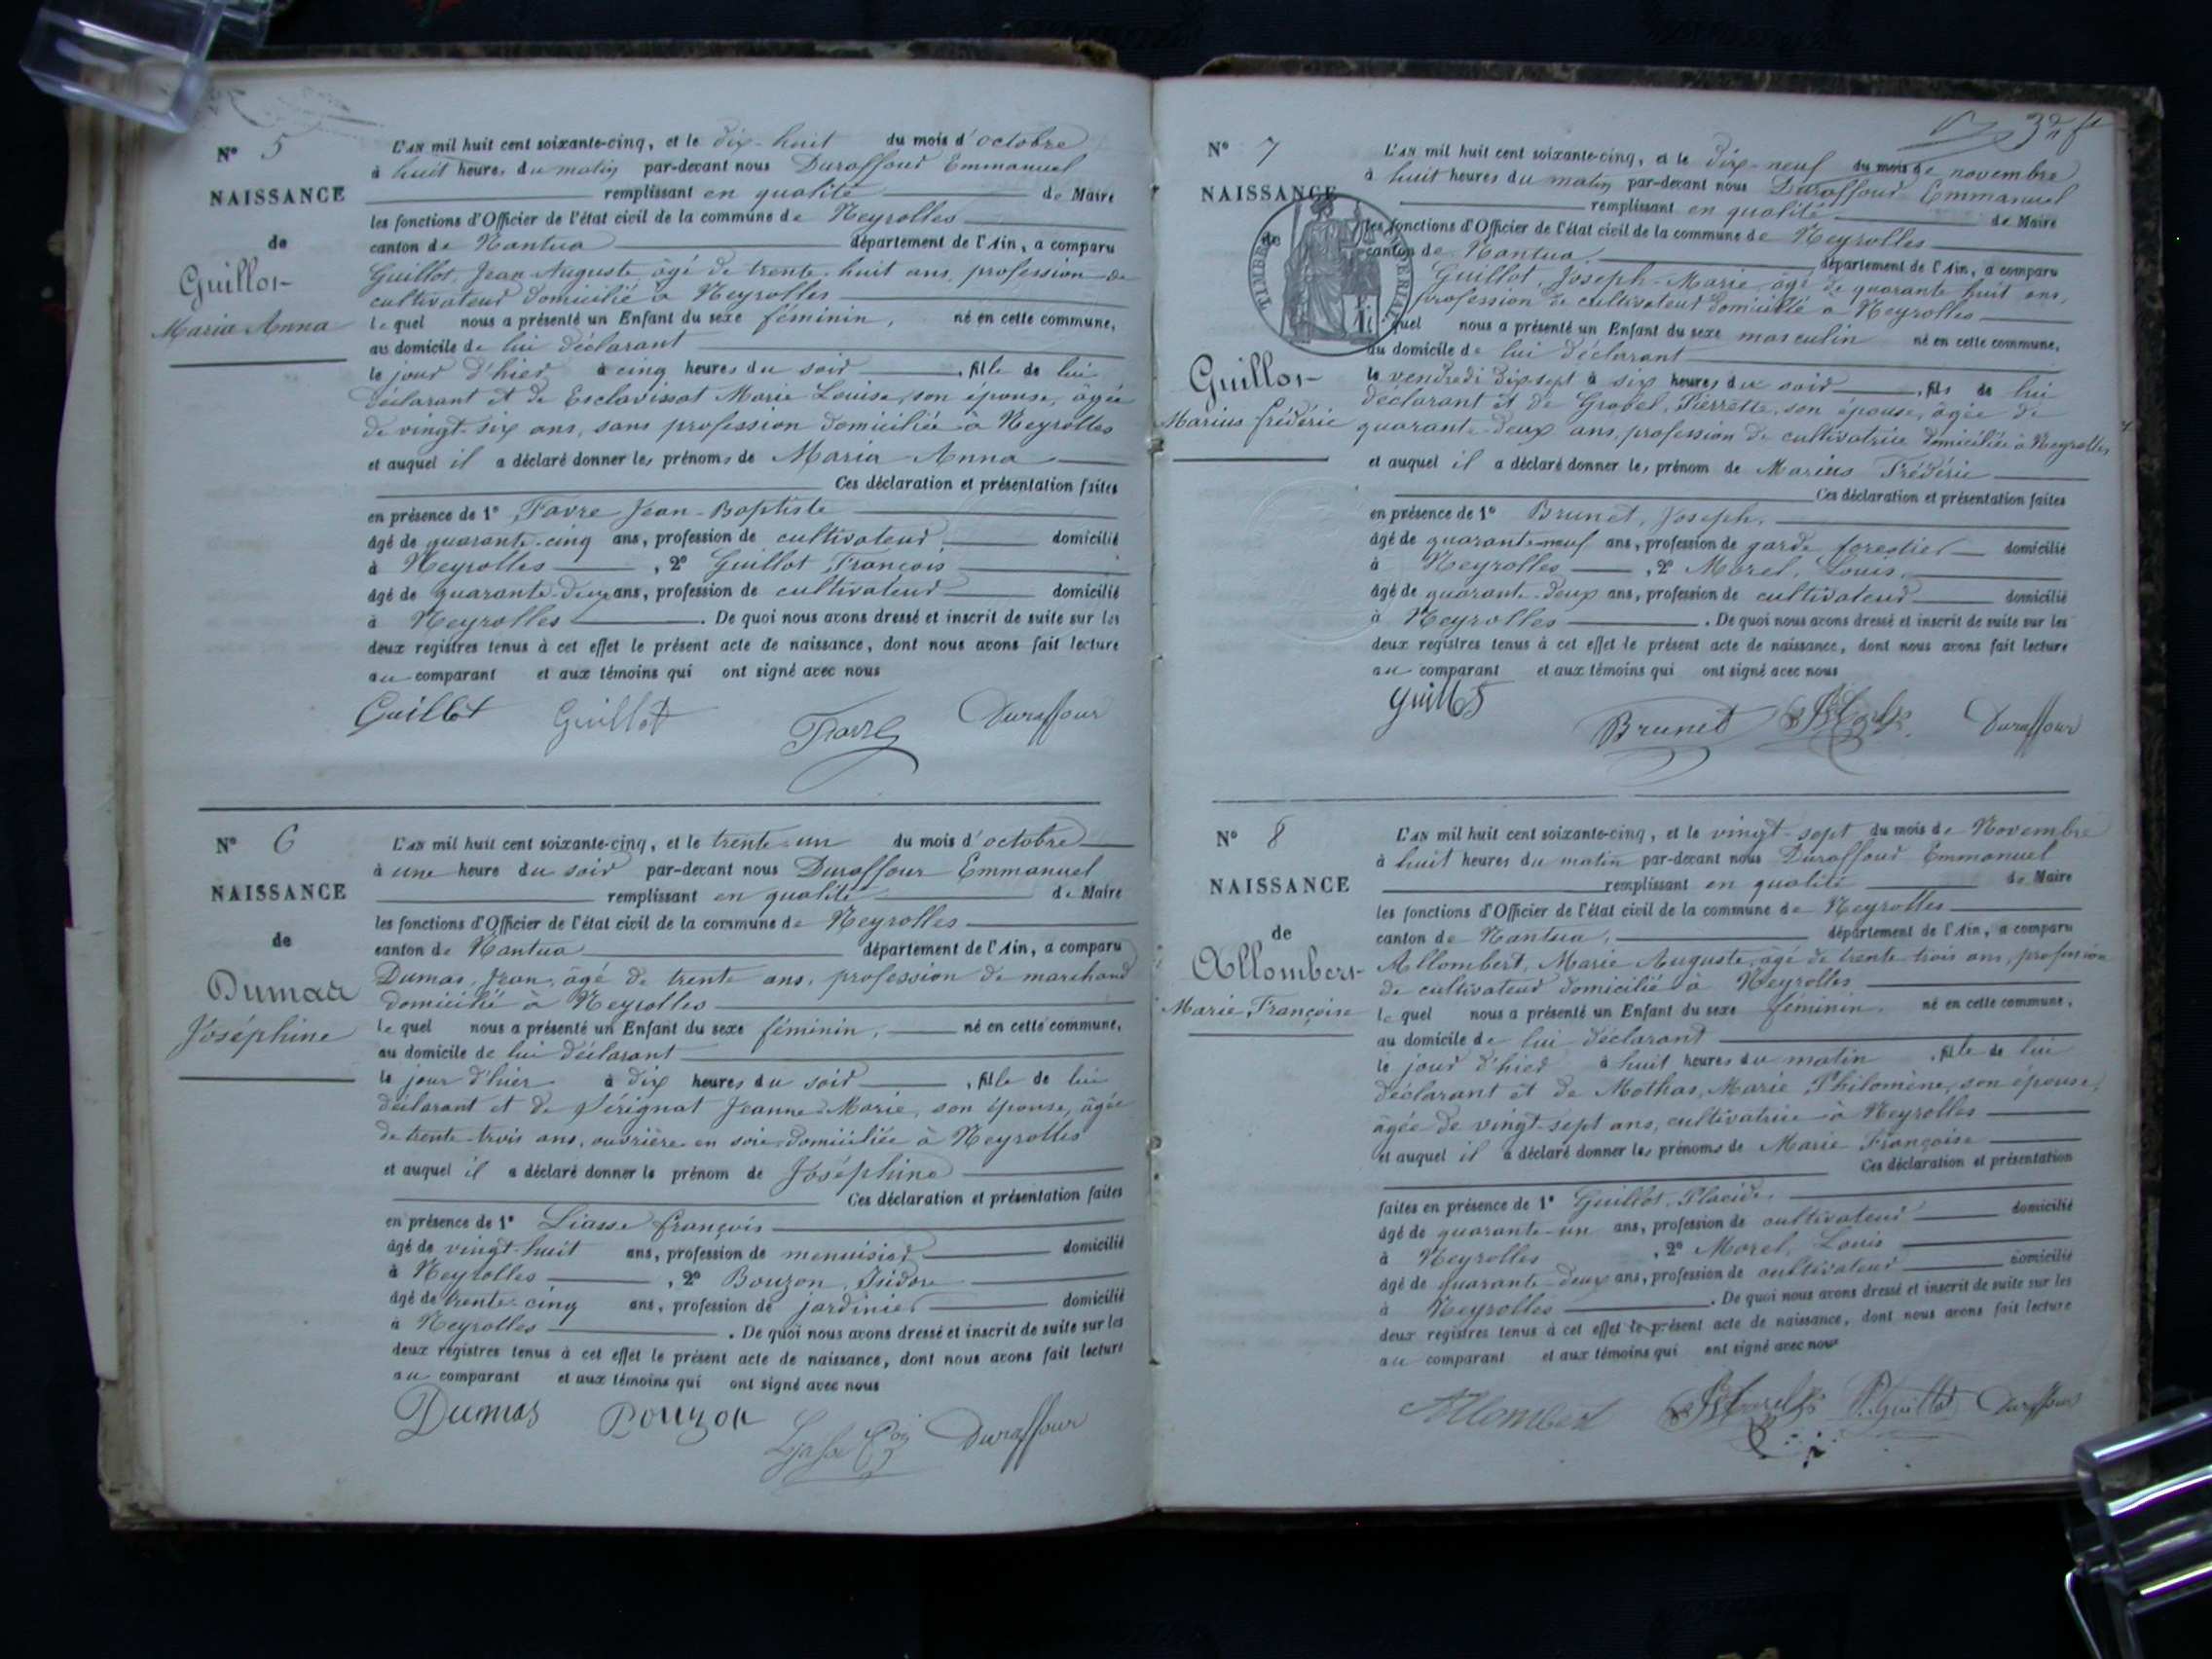 N° 5
NAISSANCE
de
Guillot
Maria Anna
L'AN mil huit cent soixante-cinq, et le dix-huit du mois d'octobre
à huit heures du matin par-devant nous Duraffour Emmanuel
remplissant en qualité de Maire
les fonctions d'Officier de l'état civil de la commune de Neyrolles
canton de Nantua département de l'Ain, a comparu
Guillot, Jean-Auguste, âgé de trente-huit ans, profession de
cultivateur domicilié à Neyrolles
lequel nous a présenté un Enfant du sexe féminin, né en cette commune,
au domicile de lui déclarant
le jour d'hier à cinq heures du soir, fille de lui
déclarant et de Esclavissat Marie Louise, son épouse, âgée
de vingt-six ans, sans profession domiciliée à Neyrolles
et auquel il a déclaré donner les prénoms de Maria Anna
Ces déclaration et présentation faites
en présence de 1° Favre Jean-Baptiste
âgé de quarante-cinq ans, profession de cultivateur, domicilié
à Neyrolles, 2° Guillot, François
âgé de quarante-deux ans, profession de cultivateur domicilié
à Neyrolles. De quoi nous avons dressé et inscrit de suite sur les
deux registres tenus à cet effet le présent acte de naissance, dont nous avons fait lecture
au comparant et aux témoins qui ont signé avec nous
Guillot Guillot Favre Duraffour
N° 6
NAISSANCE
de
Dumas
Joséphine
L'AN mil huit cent soixante-cinq, et le trente-un du mois d'octobre
à une heure du soir par-devant nous Duraffour Emmanuel
remplissant en qualité de Maire
les fonctions d'Officier de l'état civil de la commune de Neyrolles
canton de Nantua département de l'Ain, a comparu
Dumas, Jean, âgé de trente ans, profession de marchand
domicilié à Neyrolles
lequel nous a présenté un Enfant du sexe féminin, né en cette commune,
au domicile de lui déclarant
le jour d'hier à dix heures du soir, fille de lui
déclarant et de Sérignat Jeanne Marie, son épouse, âgée
de trente-trois ans, ouvrière en soie domiciliée à Neyrolles
et auquel il a déclaré donner le prénom de Joséphine
Ces déclaration et présentation faites
en présence de 1° Liasse françois
âgé de vingt-huit ans, profession de menuisier domicilié
à Neyrolles, 2° Bouzon, Isidore
âgé de trente-cinq ans, profession de jardinier domicilié
à Neyrolles. De quoi nous avons dressé et inscrit de suite sur les
deux registres tenus à cet effet le présent acte de naissance, dont nous avons fait lecture
au comparant et aux témoins qui ont signé avec nous
Dumas Bouzon Duraffour
N° 7
NAISSANCE
de
Guillot
Marius frédéric
L'AN mil huit cent soixante-cinq, et le dix-neuf du mois de novembre
à huit heures du matin par-devant nous Duraffour Emmanuel
remplissant en qualité de Maire
les fonctions d'Officier de l'état civil de la commune de Neyrolles
canton de Nantua, département de l'Ain, a comparu
Guillot, Joseph-Marie, âgé de quarante-huit ans,
profession de cultivateur domicilié à Neyrolles
lequel nous a présenté un Enfant du sexe masculin né en cette commune,
au domicile de lui déclarant
le vendredi dix-sept à six heures du soir, fils de lui
déclarant et de Grobel, Pierrette, son épouse, âgée de
quarante-deux ans, profession de cultivatrice domiciliée à Neyrolles
et auquel il a déclaré donner les prénom de Marius Frédéric
Ces déclaration et présentation faites
en présence de 1° Brunet, Joseph,
âgé de quarante-neuf ans, profession de garde forestier domicilié
à Neyrolles, 2° Morel, Louis,
âgé de quarante-deux ans, profession de cultivateur domicilié
à Neyrolles. De quoi nous avons dressé et inscrit de suite sur les
deux registres tenus à cet effet le présent acte de naissance, dont nous avons fait lecture
au comparant et aux témoins qui ont signé avec nous
Guillot Brunet Duraffour
N° 8
NAISSANCE
de
Allombert
Marie, Françoise
L'AN mil huit cent soixante-cinq, et le vingt-sept du mois de Novembre
à huit heures du matin par-devant nous Duraffour Emmanuel
remplissant en qualité de Maire
les fonctions d'Officier de l'état civil de la commune de Neyrolles
canton de Nantua, département de l'Ain, a comparu
Allombert, Marie Auguste, âgé de trente-trois ans, profession
de cultivateur domicilié à Neyrolles
lequel nous a présenté un Enfant du sexe féminin, né en cette commune,
au domicile de lui déclarant
le jour d'hier à huit heures du matin, fille de lui
déclarant et de Mathas, Marie Philomène, son épouse,
âgée de vingt-sept ans, cultivatrice à Neyrolles
et auquel il a déclaré donner les prénoms de Marie Françoise
Ces déclaration et présentation
faites en présence de 1° Guillot, Placide,
âgé de quarante-un ans, profession de cultivateur domicilié
à Neyrolles, 2° Morel, Louis
âgé de quarante-deux ans, profession de cultivateur domicilié
à Neyrolles. De quoi nous avons dressé et inscrit de suite sur les
deux registres tenus à cet effet le présent acte de naissance, dont nous avons fait lecture
au comparant et aux témoins qui ont signé avec nous
Allombert P. Guillot Duraffour